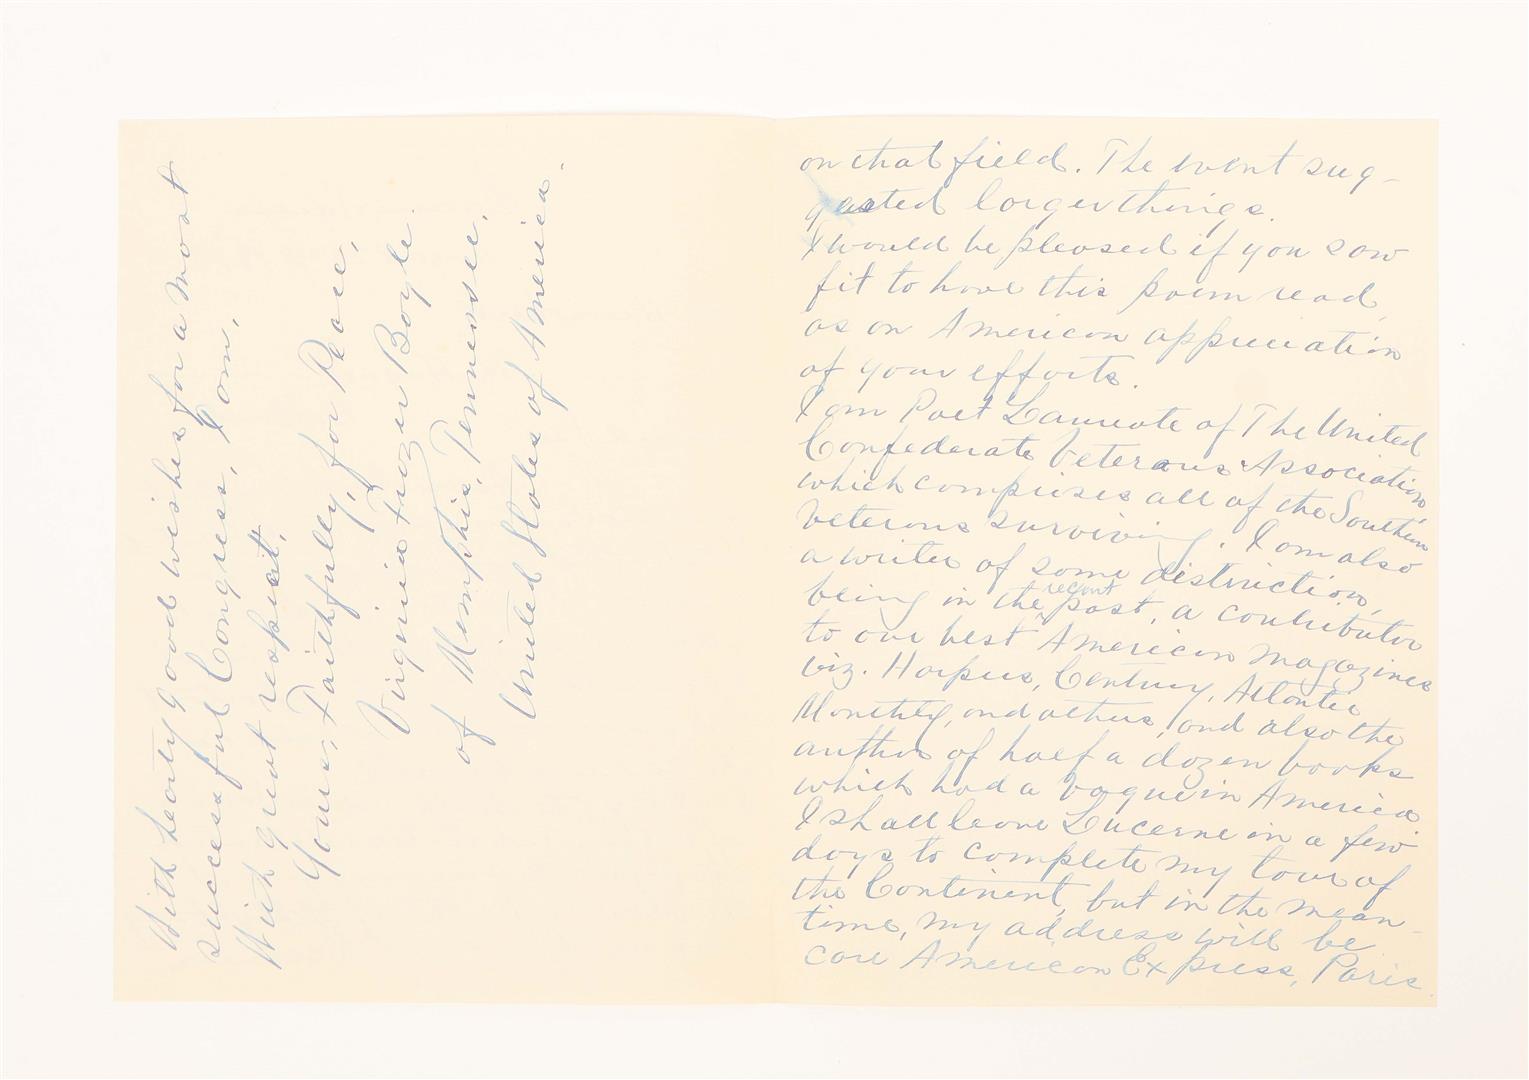 on that field. The event sug-
gested larger things.
I would be pleased if you saw
fit to have this poem read,
as an American appreciation
of your efforts.
I am Poet Laureate of The United
Confederate Veterans Association,
which comprises all of the Southern
veterans surviving. I am also
a writer of some distinction,
being in the recent past, a contributor
to our best American magazines
viz. Harpers, Century, Atlantic
Monthly, and others, and also the
author of half a dozen books
which had a vogue in America
I shall leave Lucerne in a few
days to complete my tour of
the Continent, but in the mean-
time, my address will be
care American Express, Paris.
With hearty good wishes for a most
successful Congress, I am,
With great respect,
Yours, Faithfully, for Peace,
Virginia Frazer Boyle.
of Memphis, Tennessee,
United States of America.